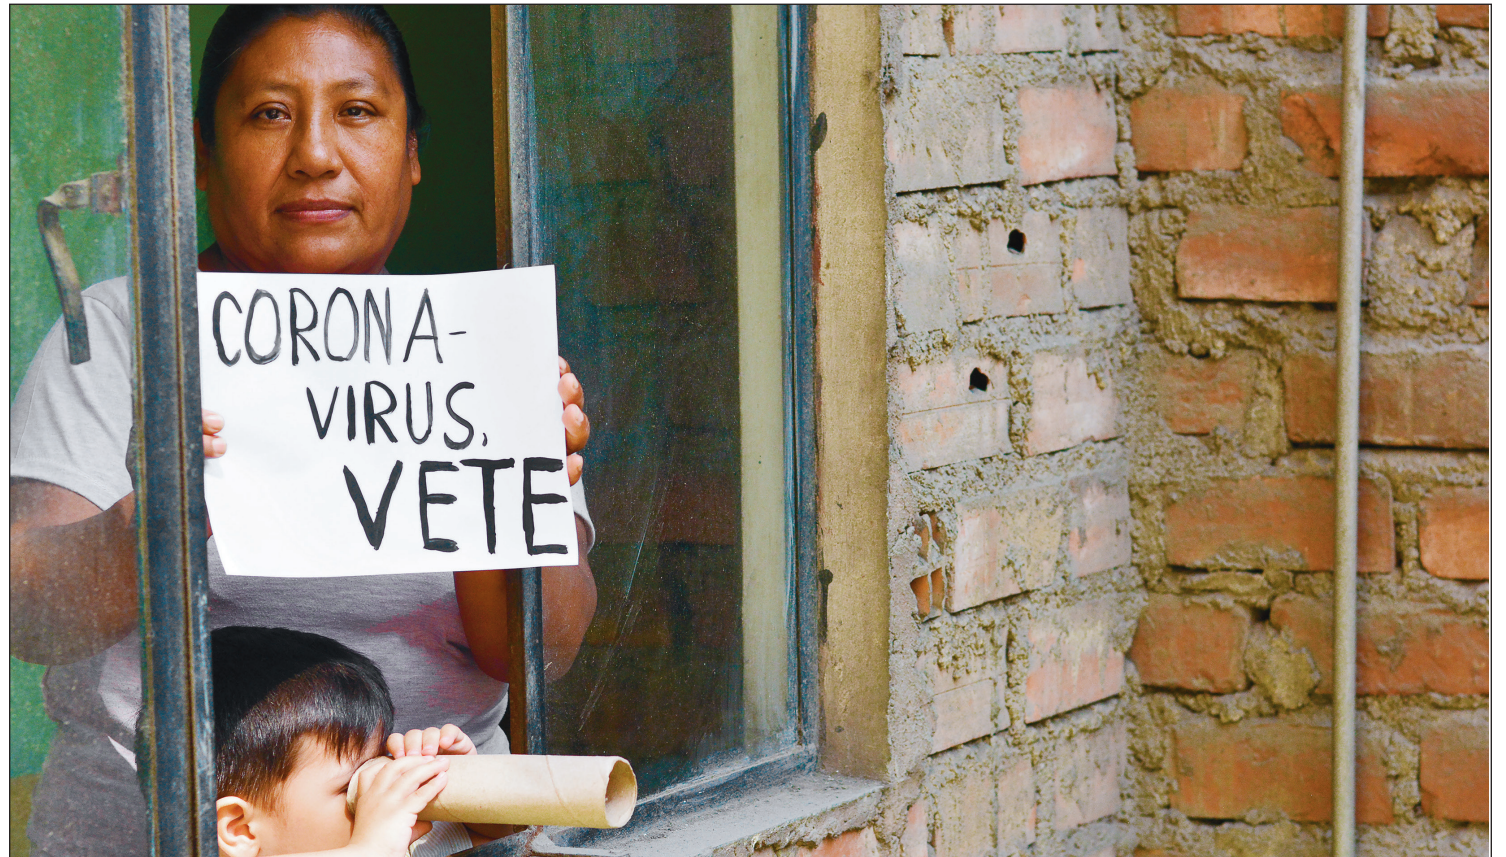 CORONA-
VIRUS,
VETE